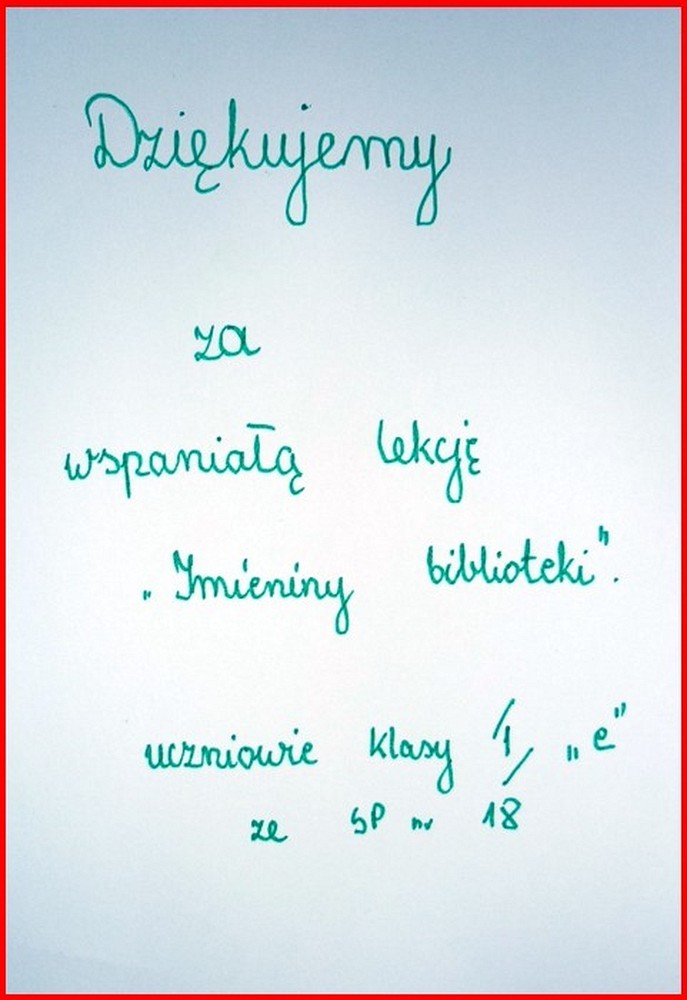 Dziękujemy
za
wspaniałą lekcję
„Imieniny biblioteki".
uczniowie klasy /1/ „e"
ze SP nr 18